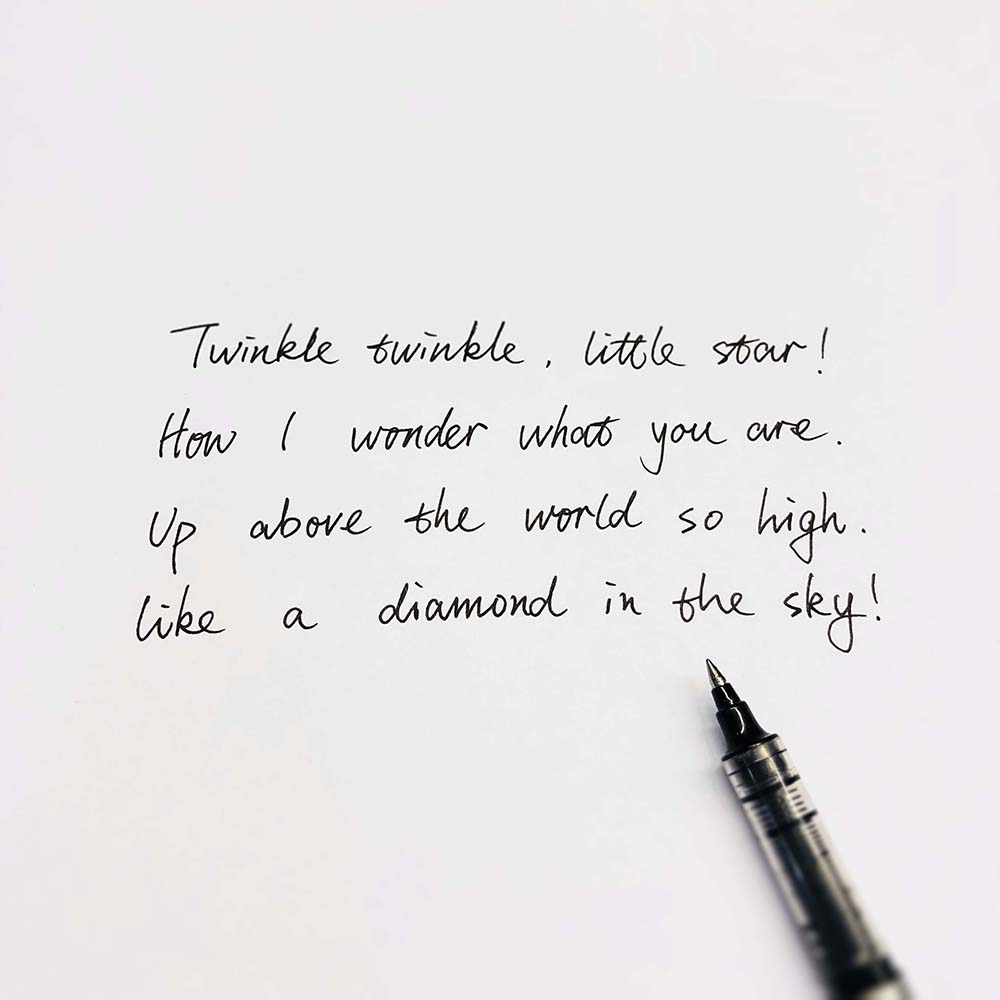 Twinkle twinkle, little star!
How I wonder what you are.
Up above the world so high.
like a diamond in the sky!